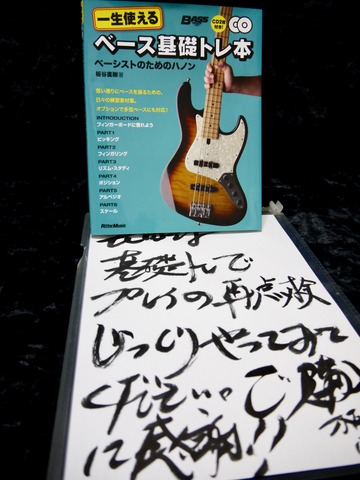 一生使える
BASS
CD2枚付き!
ベース基礎トレ本
ベーシストのためのハノン
板谷直樹 著
思い通りにベースを操るための、
日々の練習素材集。
オプションで多弦ベースにも対応!
INTRODUCTION
フィンガーボードに慣れよう
PART1
ピッキング
PART2
フィンガリング
PART3
リズム・スタディ
PART4
ポジション
PART5
アルペジオ
PART6
スケール
Rittor Music
基礎トレで
プレイの再点検
じっくりやってみて
下さい…ご購
に感謝!!